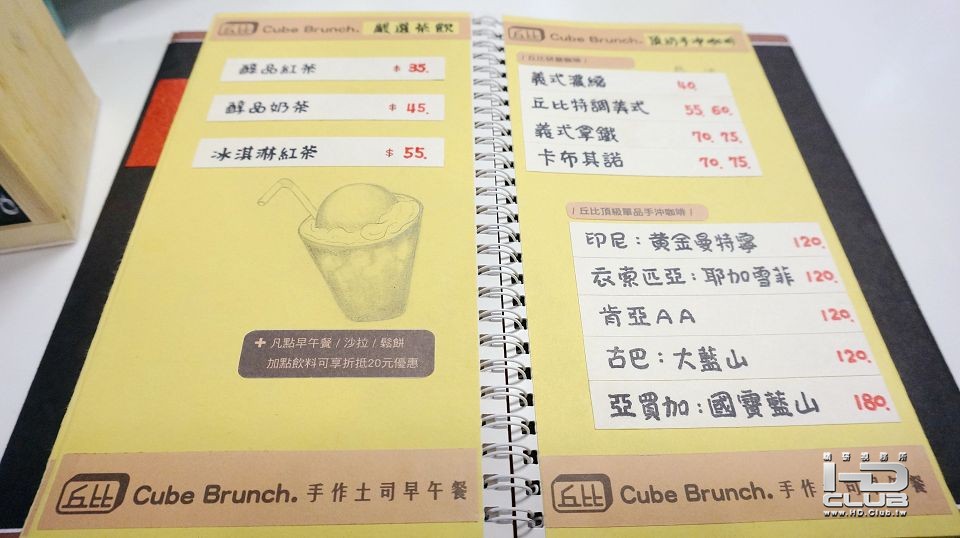 丘比 Cube Brunch. 嚴選茶飲
醇品紅茶 $ 35.
醇品奶茶 $ 45.
冰淇淋紅茶 $ 55.
+ 凡點早午餐 / 沙拉 / 鬆餅
加點飲料可享折抵20元優惠
丘比 Cube Brunch. 手作土司早午餐
丘比 Cube Brunch. 頂級手沖咖啡
/ 丘比研磨咖啡 /
義式濃縮 40.
丘比特調美式 55. 60.
義式拿鐵 70. 75.
卡布其諾 70. 75.
/ 丘比頂級單品手沖咖啡 /
印尼：黃金曼特寧 120.
衣索匹亞：耶加雪菲 120.
肯亞AA 120.
古巴：大藍山 120.
亞買加：國寶藍山 180.
丘比 Cube Brunch. 手作
餐
HD CLUB
www.HD.Club.tw